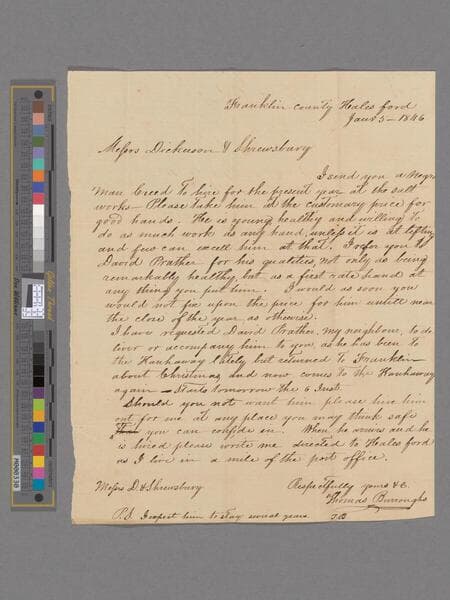 Franklin county Hales ford
Jany 5 - 1846
Messrs Dickenson & Shrewsbury
I send you a Negro
Man Creed To hire for the present year at the salt
works - Please take him at the customary price for
good hands. He is young healthy and willing to
do as much work as any hand, unless it is at lifting
and few can excell him at that. I refer you to
David Prather for his qualities, not only as being
remarkably healthy but as a first rate hand at
any thing you put him. I would as soon you
would not fix upon the price for him untill near
the close of the year as otherwise.
I have requested David Prather, my neighbour, to de
liver or accompany him to you, as he has been to
the Kanhaway lately but returned to Franklin
about Christmas, and now comes to the Kanhaway
again - Starts tomorrow the 6 Inst.
Should you not want him please hire him
out for me at any place you may think safe
you can confide in. When he arrives and he
is hired please write me directed to Hales ford
as I live in a mile of the post office.
Messrs D. & Shrewsbury
Respectfully yours &c.
Thomas Burroughs
P.S. I expect him to stay several years. T.B
M000330